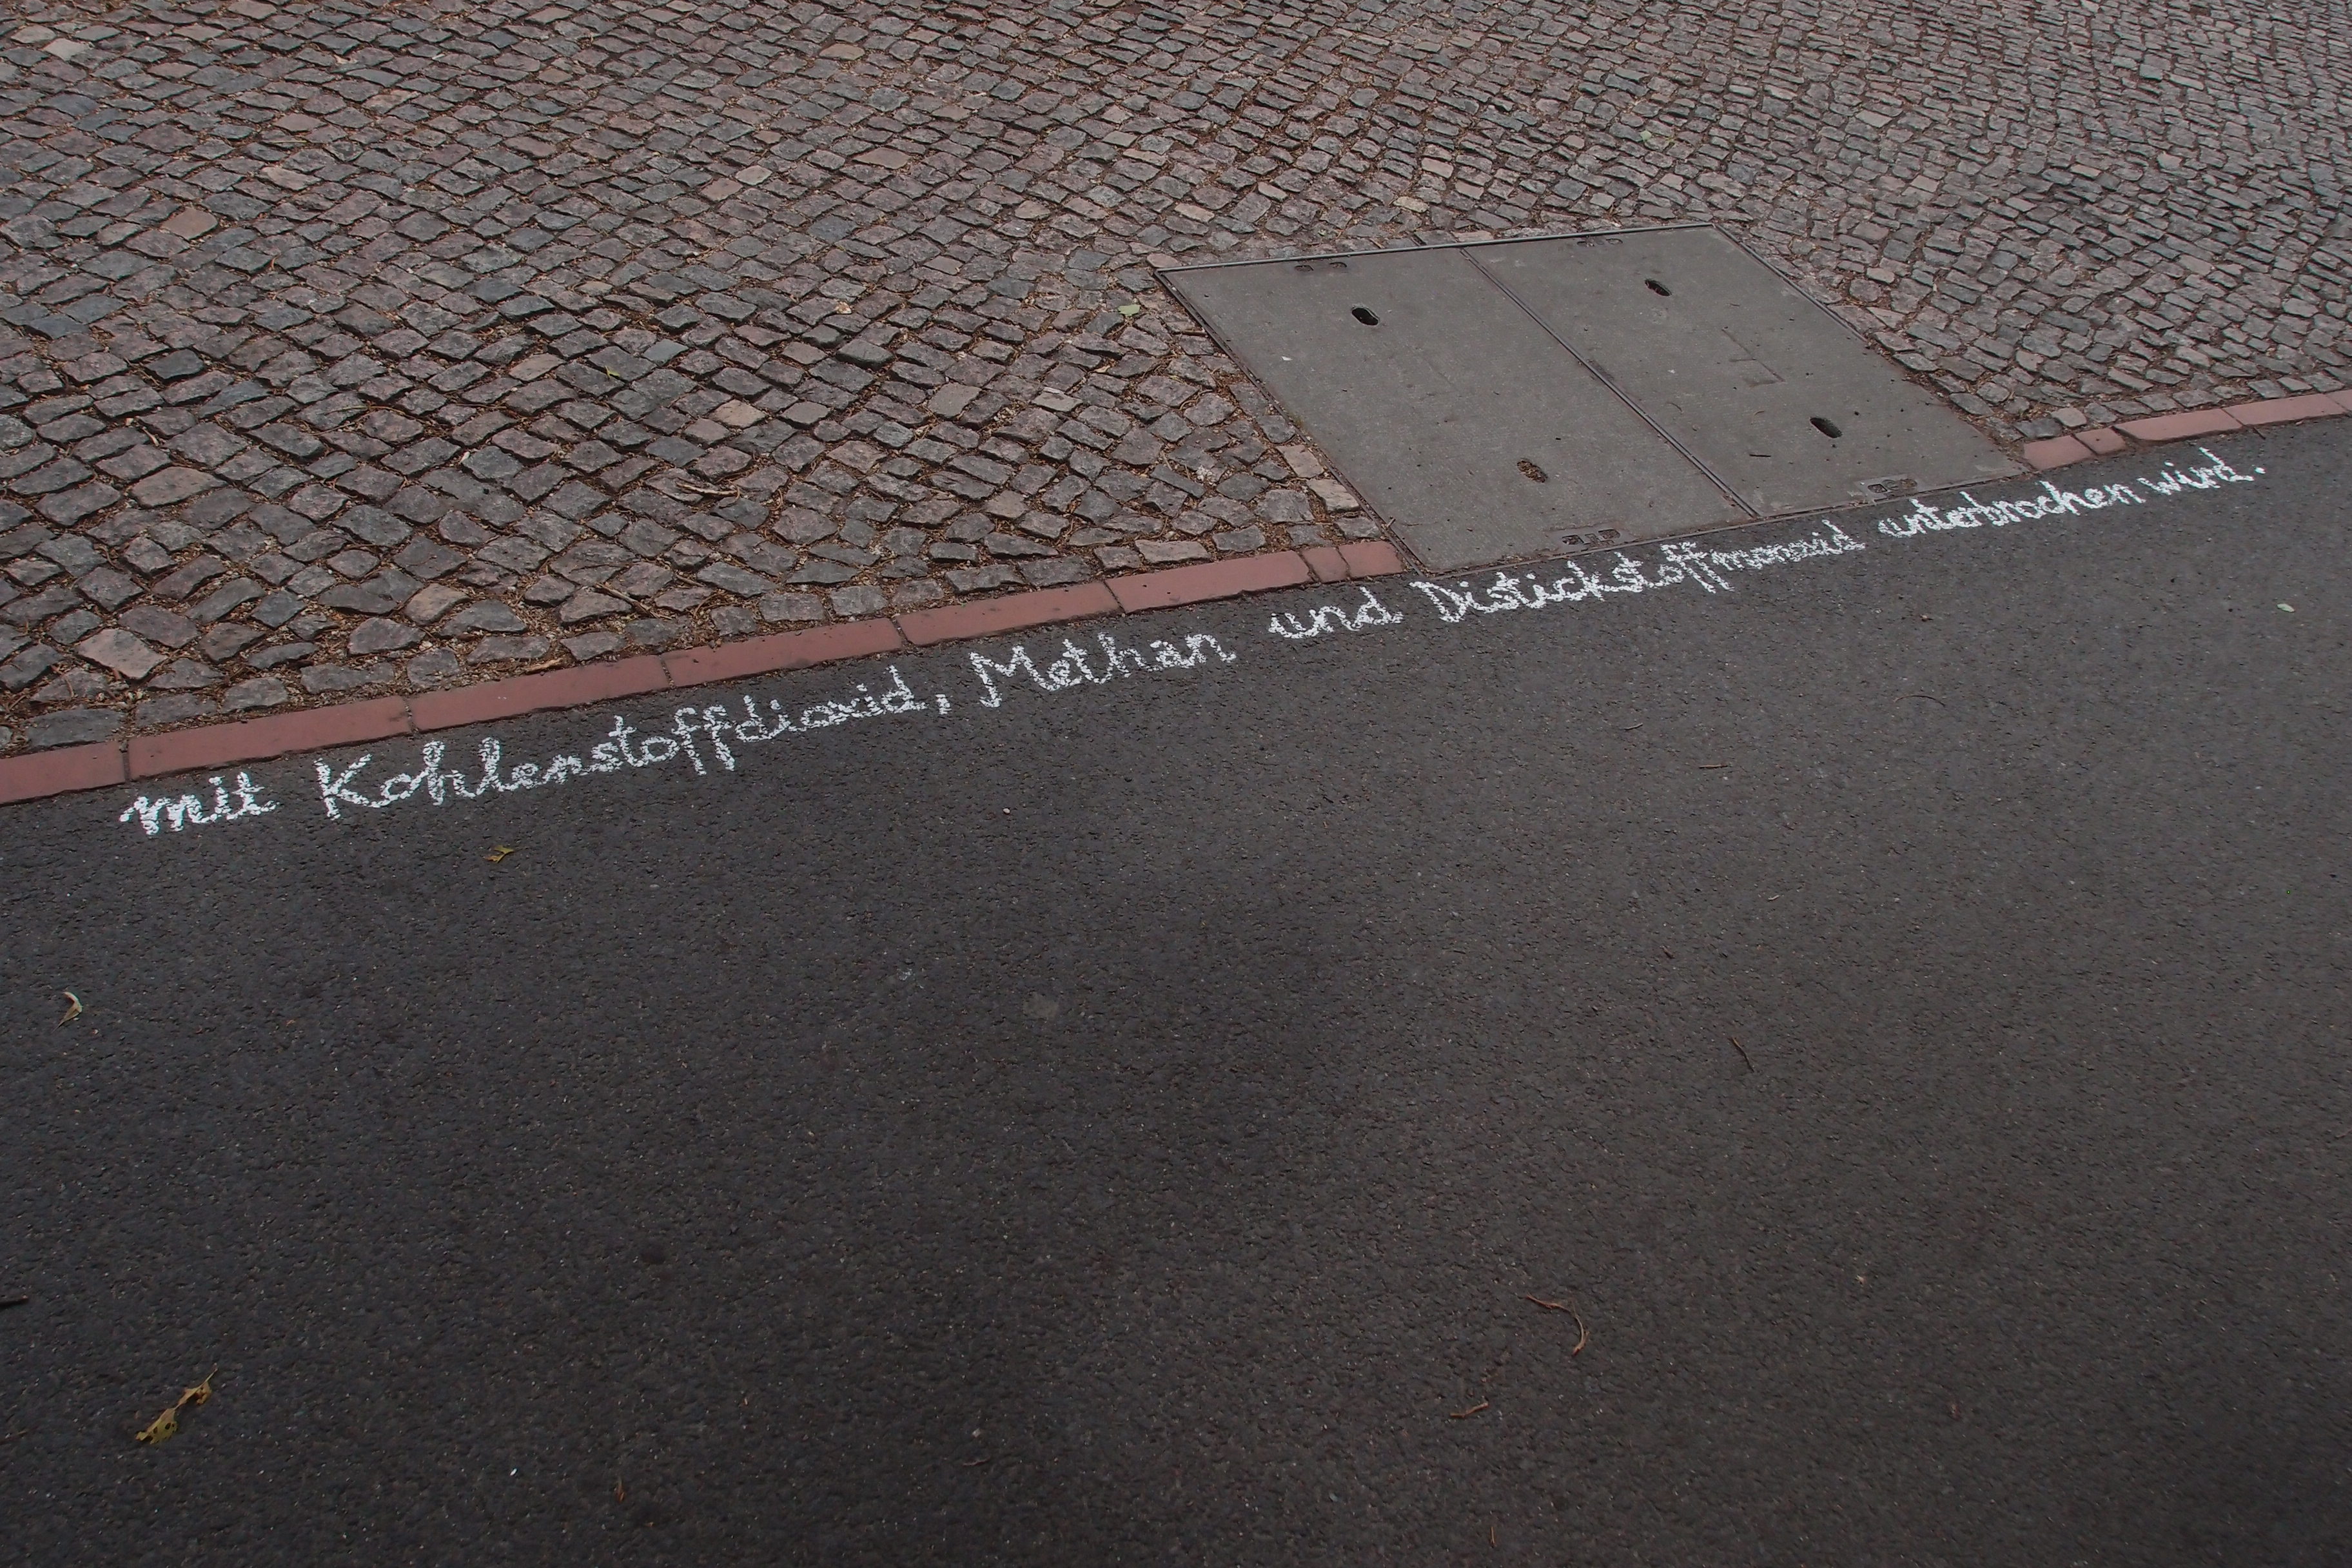 mit Kohlenstoffdioxid, Methan und Distickstoffmonoxid unterbrochen wird.